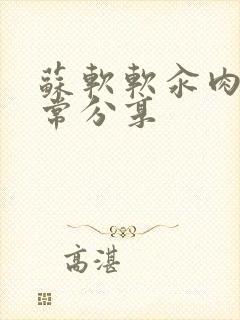 蘇軟軟汆肉
常分享
高湛